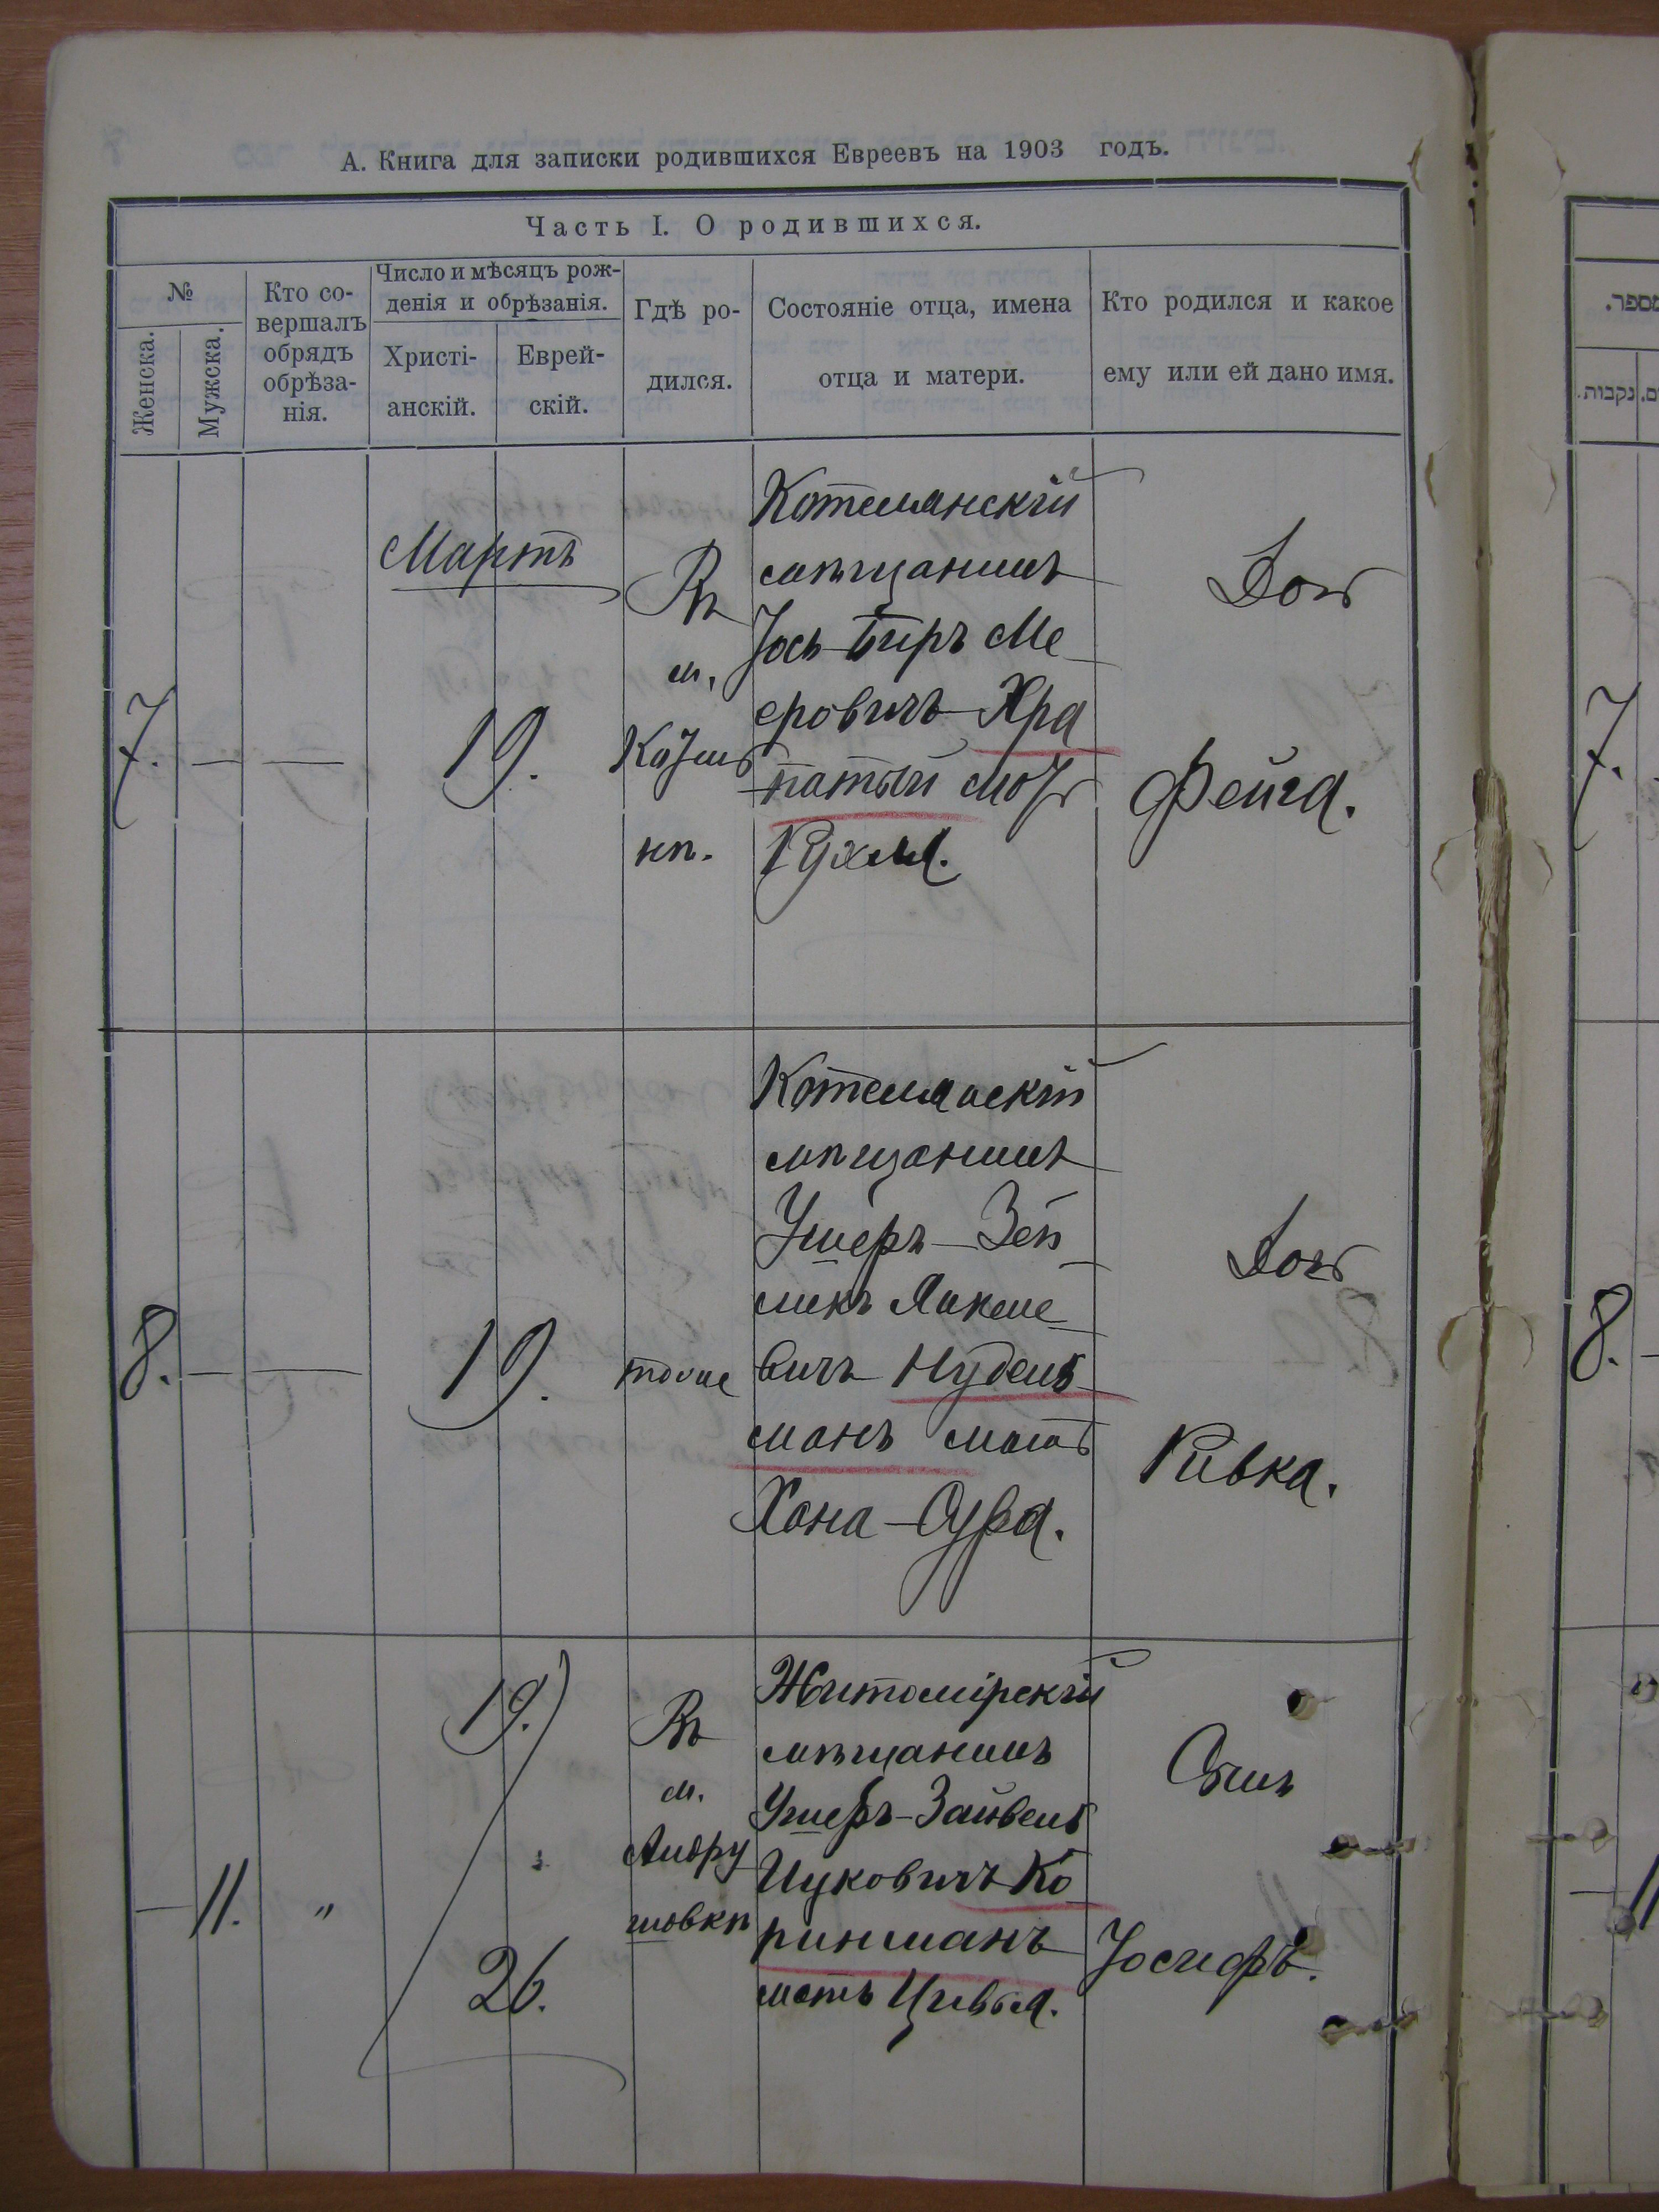 А. Книга для записки родившихся Евреевъ на 1903 годъ.
Часть I. О родившихся.
№
Женска.
Мужска.
Кто со-
вершалъ
обрядъ
обрѣза-
нія.
Число и мѣсяцъ рож-
денія и обрѣзанія.
Христі-
анскій.
Еврей-
скій.
Гдѣ ро-
дился.
Состояніе отца, имена
отца и матери.
Кто родился и какое
ему или ей дано имя.
7. — —
Мартъ
19.
Въ
м.
нѣ.
Котелянскій
мѣщанинъ
Іось-Биръ Ме
еровичъ Хра
патый мать
Рухля.
Дочь
Фейга.
8. — —
19.
тоже
Котелянскій
мѣщанинъ
Ушеръ-Зей
вичъ Нудель
манъ мать
Хана-Сура.
Дочь
Ривка.
— 11. "
19.
26.
Въ
м.
Андру
шовкѣ
Житомірскій
мѣщанинъ
Ушеръ-Зайвель
Ицковичъ Ко
ринманъ
мать Цивья.
Сынъ
Іосифъ.
7.
8.
—
מספר.
נקבות.